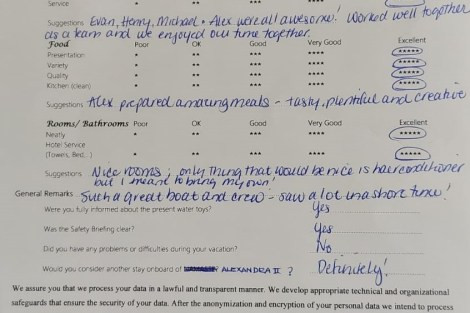 Service
Suggestions Evan, Henry, Michael + Alex were all awesome! Worked well together
as a team and we enjoyed our time together.
Food Poor OK Good Very Good Excellent
Presentation ** *** **** *****
Variety ** *** **** *****
Quality ** *** **** *****
Kitchen (clean) ** *** **** *****
Suggestions Alex prepared amazing meals - tasty, plentiful and creative
Rooms/ Bathrooms Poor OK Good Very Good Excellent
Neatly * ** *** **** *****
Hotel Service
(Towels, Bed...) * ** *** **** *****
Suggestions Nice rooms; only thing that would be nice is hairconditioner
but I meant to bring my own!
General Remarks Such a great boat and crew - saw a lot in a short time!
Were you fully informed about the present water toys? Yes
Was the Safety Briefing clear? Yes
Did you have any problems or difficulties during your vacation? No
Would you consider another stay onboard of ALEXANDRA II ? Definitely!
We assure you that we process your data in a lawful and transparent manner. We develop appropriate technical and organizational
safeguards that ensure the security of your data. After the anonymization and encryption of your personal data we intend to process